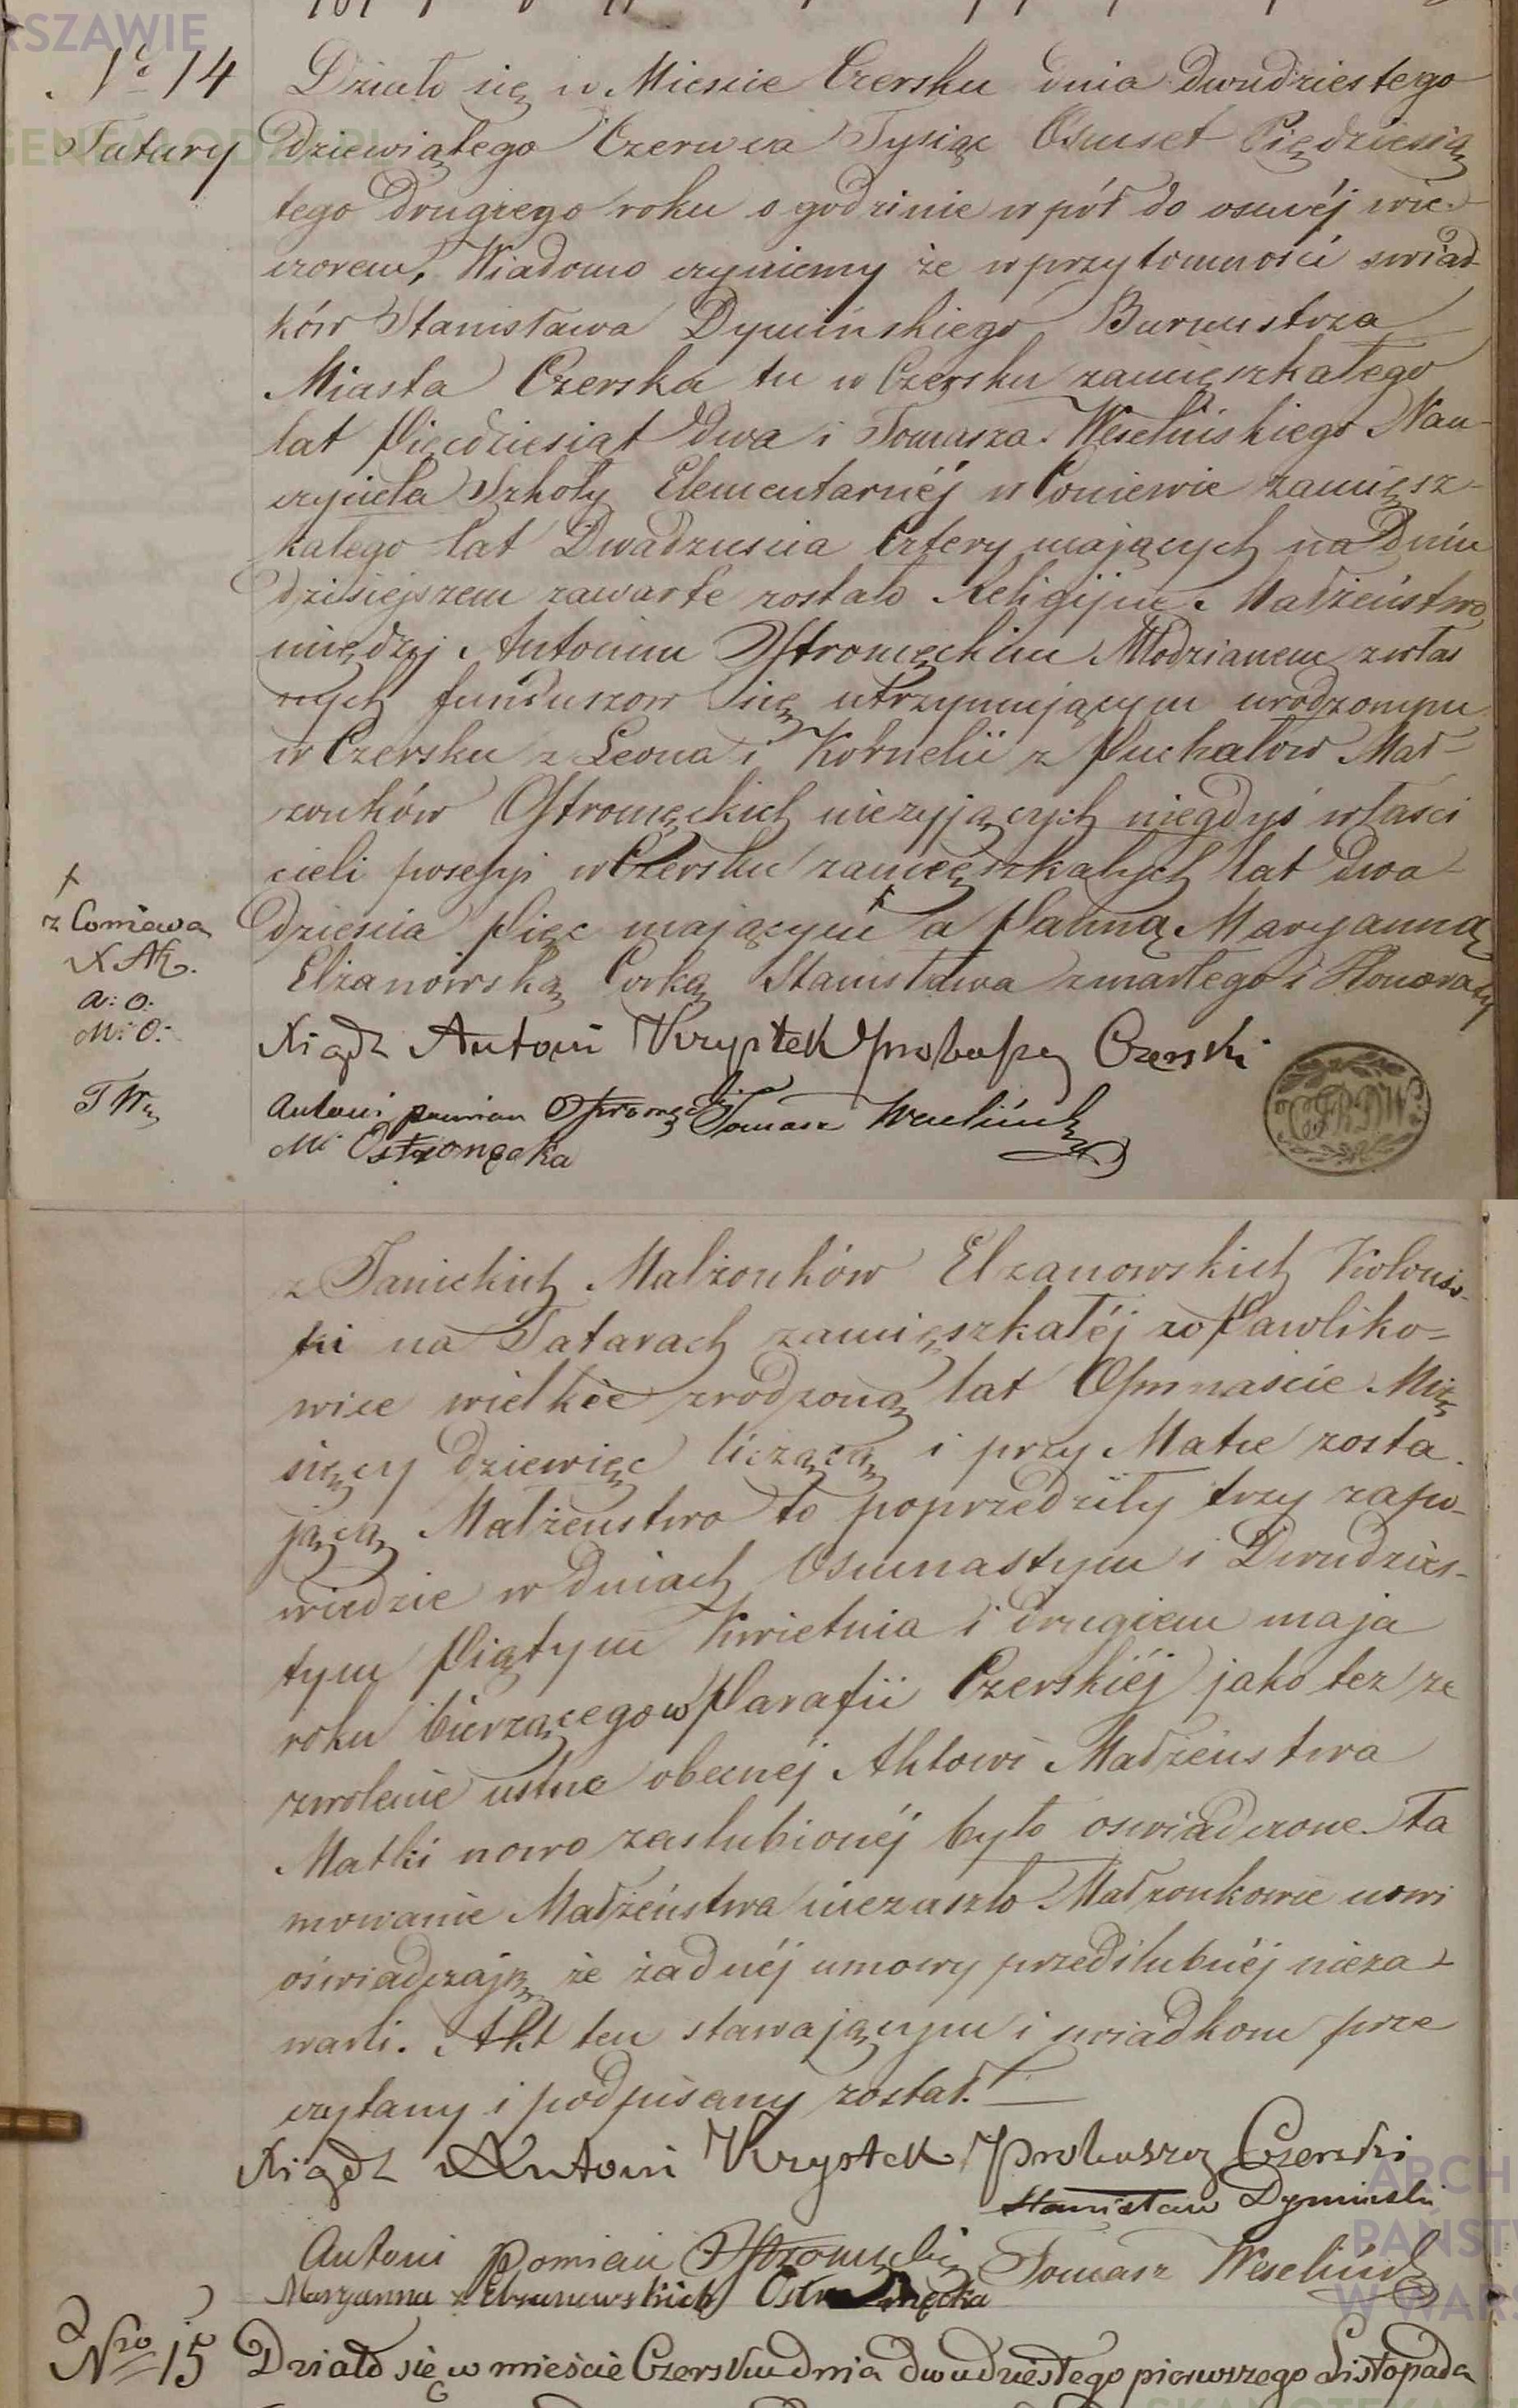 No 14
Tatary
Działo się w Mieście Czersku dnia dwudziestego
dziewiątego Czerwca Tysiąc Osmset Piędziesią
tego drugiego roku o godzinie w pół do osméj wie-
czorem, Wiadomo czyniemy że w przytomności świad-
ków Stanisława Dymińskiego Burmistrza
Miasta Czerska tu w Czersku zamięszkałego
lat Pięcdziesiąt dwa i Tomasza Weselińskiego Nau-
czyciela Szkoły Elementarnéj w Coniewie zamięsz-
kałego lat Dwadzieścia Cztery mających na Dniu
dzisiejszem zawarte zostało Religijne Małżeństwo
między Antonim Ostromęckim Młodzianem z włas
nych funduszow się utrzymującym urodzonym
w Czersku z Leona i Kornelii z Puchałow Mał-
zonków Ostromęckich nieżyjących niegdyś właści
cieli posessji w Czersku zamięszkałych lat dwa-
dzieścia pięc mającym a Panną Maryanną
Elzanowską Corką Stanisława zmarłego i Honoraty
+
z Coniewa
X. AK.
A: O:
M: O:
T W
Xiądz Antoni Krystek Proboszcz Czerski
Antoni pomian Ostromęcki Tomasz Weseliński
M: Ostromęcka
z Janickich Małżonków Elzanowskich Kolonis-
tki na Tatarach zamięszkałéj zo Pawliko-
wice wielkie zrodzoną lat Osmnaście Mie
sięcy dziewięc liczącą i przy Matce zosta-
jącą Małżeństwo to poprzedziły trzy zapo-
wiedzie w dniach Osmnastym i Dwudzies-
tym Piątym Kwietnia i drugiem maja
roku bierzącego w Parafii Czerskiéj jako też ze
zwolenie ustne obecnéj Aktowi Małżeństwa
Matki nowo zaslubionéj było oświadczone Ta
mowanie Małżeństwa niezaszło Małżonkowie nowi
oświadczają że żadnéj umowy przedślubnéj nieza-
warli. Akt ten stawającym i swiadkom prze
czytany i podpisany został.
Xiądz Antoni Krystek Proboszcz Czerski
Stanisław Dymiński
Antoni Pomian Ostromęcki Tomasz Weseliński
Maryanna z Elzanowskich Ostromęcka
Nro 15
Działo się w mieście Czersku dnia dwudziestego pierwszego Listopada